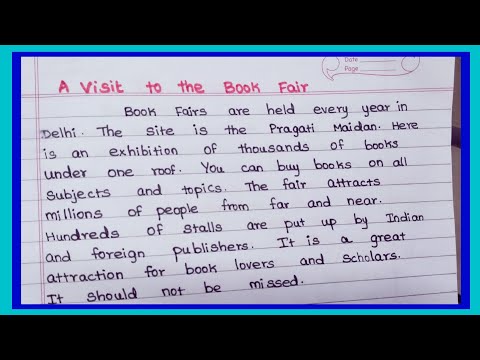 Date
Page
A Visit to the Book Fair
Book Fairs are held every year in
Delhi. The site is the Pragati Maidan. Here
is an exhibition of thousands of books
under one roof. You can buy books on all
subjects and topics. The fair attracts
millions of people from far and near.
Hundreds of stalls are put up by Indian
and foreign publishers. It is a great
attraction for book lovers and scholars.
It should not be missed.